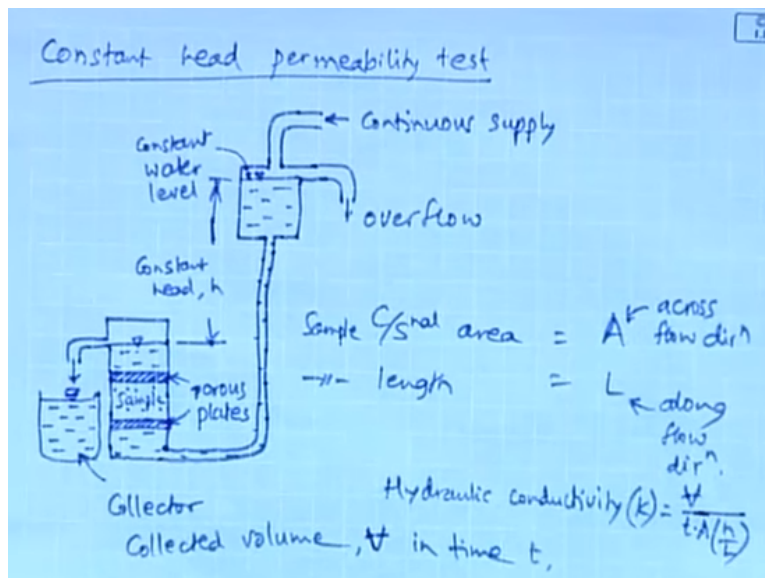 Constant head permeability test
Continuous supply
Constant
water
level
overflow
Constant
head, h
Sample C/Snal area = A across
flow dirn
-〃- length = L along
flow
dirn.
Sample
Porous
plates
Collector
Hydraulic conductivity (k) = V / t.A(h/L)
Collected volume, V in time t,